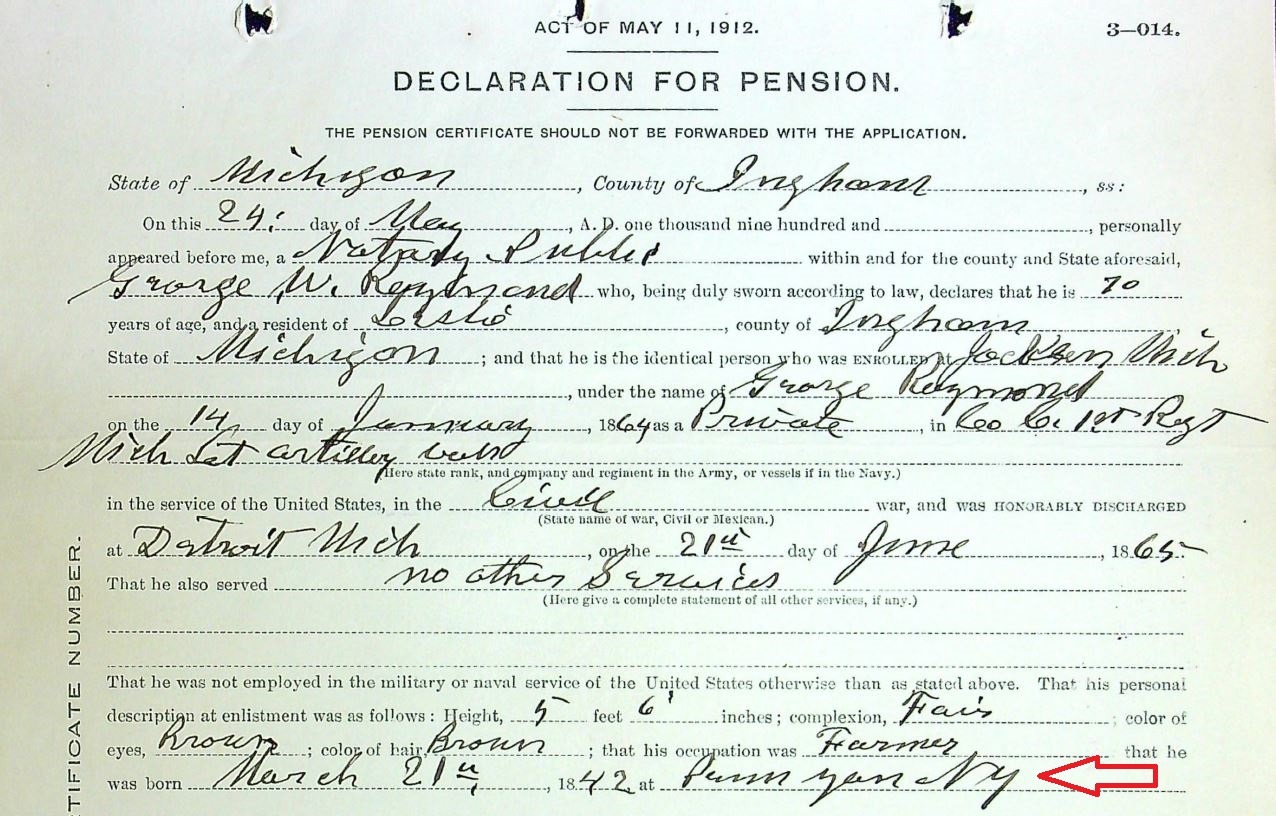 ACT OF MAY 11, 1912.
3—014.
DECLARATION FOR PENSION.
THE PENSION CERTIFICATE SHOULD NOT BE FORWARDED WITH THE APPLICATION.
State of Michigan, County of Ingham, ss:
On this 24. day of May, A. D. one thousand nine hundred and , personally
appeared before me, a Notary Public within and for the county and State aforesaid,
George W. Raymond who, being duly sworn according to law, declares that he is 70
years of age, and a resident of Leslie, county of Ingham,
State of Michigan; and that he is the identical person who was ENROLLED at Jackson Mich
, under the name of George Raymond
on the 14 day of January, 1864 as a Private, in Co C. 1st Regt
Mich Lgt artilley vols
(Here state rank, and company and regiment in the Army, or vessels if in the Navy.)
in the service of the United States, in the Civil war, and was HONORABLY DISCHARGED
(State name of war, Civil or Mexican.)
at Detroit Mich, on the 21st day of June, 1865
That he also served no other Services
(Here give a complete statement of all other services, if any.)
That he was not employed in the military or naval service of the United States otherwise than as stated above. That his personal
description at enlistment was as follows: Height, 5 feet 6 inches; complexion, Fair; color of
eyes, Brown; color of hair Brown; that his occupation was Farmer that he
was born March 21st, 1842 at Penn yan NY
TIFICATE NUMBER.